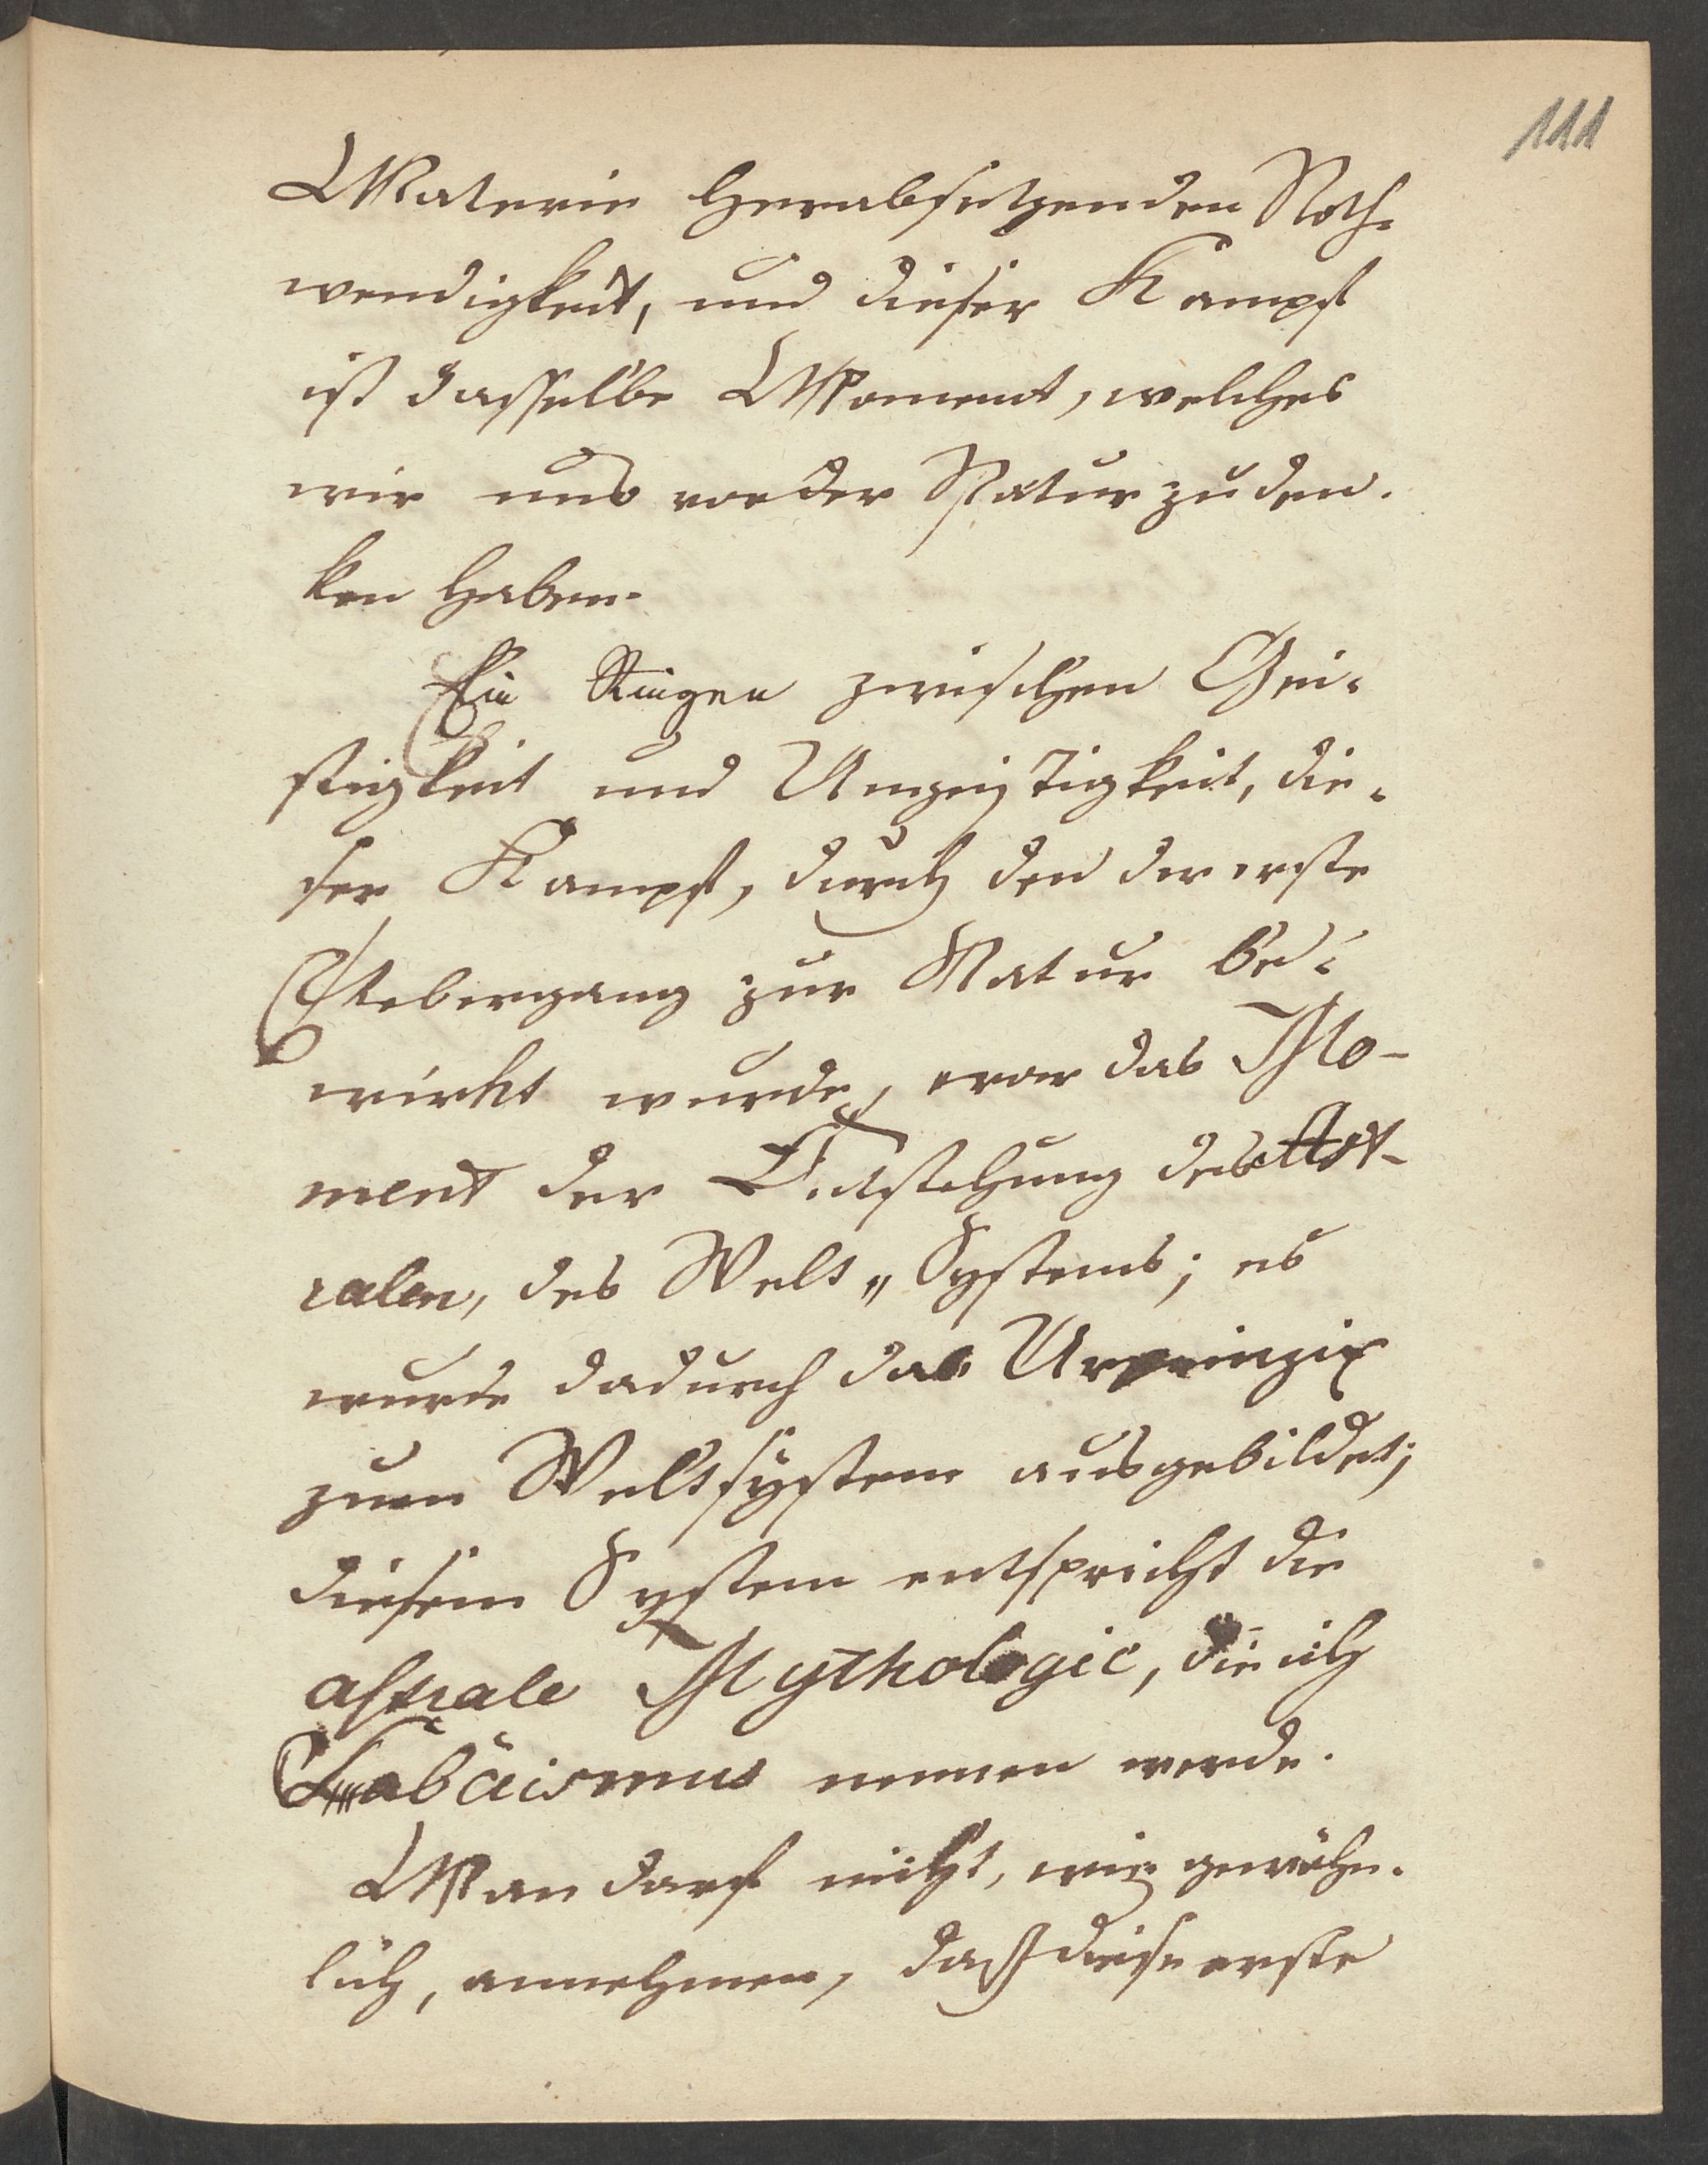 111
Materie herabsetzenden Noth-
wendigkeit, und dieser Kampf
ist dasselbe Moment, welches
wir uns vor der Natur zu den-
ken haben.
Ein Ringen zwischen Gei-
stigkeit und Ungeistigkeit, die-
ser Kampf, durch den der erste
Uebergang zur Natur be-
wirkt wurde, war das Mo-
ment der Entstehung des Ast-
ralen, des Welt„Systems; es
wurde dadurch das Urprinzip
zum Weltsystem ausgebildet;
diesem System entspricht die
astrale Mythologie, die ich
Sabäismus nennen werde.
Man darf nicht, wie gewöhn-
lich, annehmen, daß diese erste